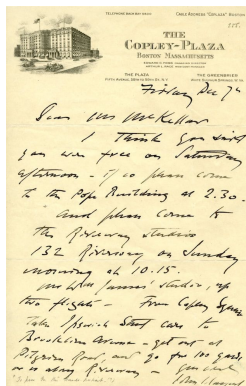 TELEPHONE BACK BAY 6800
CABLE ADDRESS "COPLAZA" BOSTON
THE
COPLEY-PLAZA
BOSTON MASSACHUSETTS
THE PLAZA
THE GREENBRIER
Friday Dec 7th
Dear Mr McKellar
I think you said
you were free on Saturday
afternoon - if so please come
to the Pope Building at 2.30.
and please come to
the Riverway studios
132 Riverway on Sunday
morning at 10.15.
Mr James' studio, up
two flights - From Copley Square
take Ipswich Street cars to
Brookline Avenue - get out at
Pilgrim Road, and go for 100 yards
or so along Riverway -
John S. Sargent